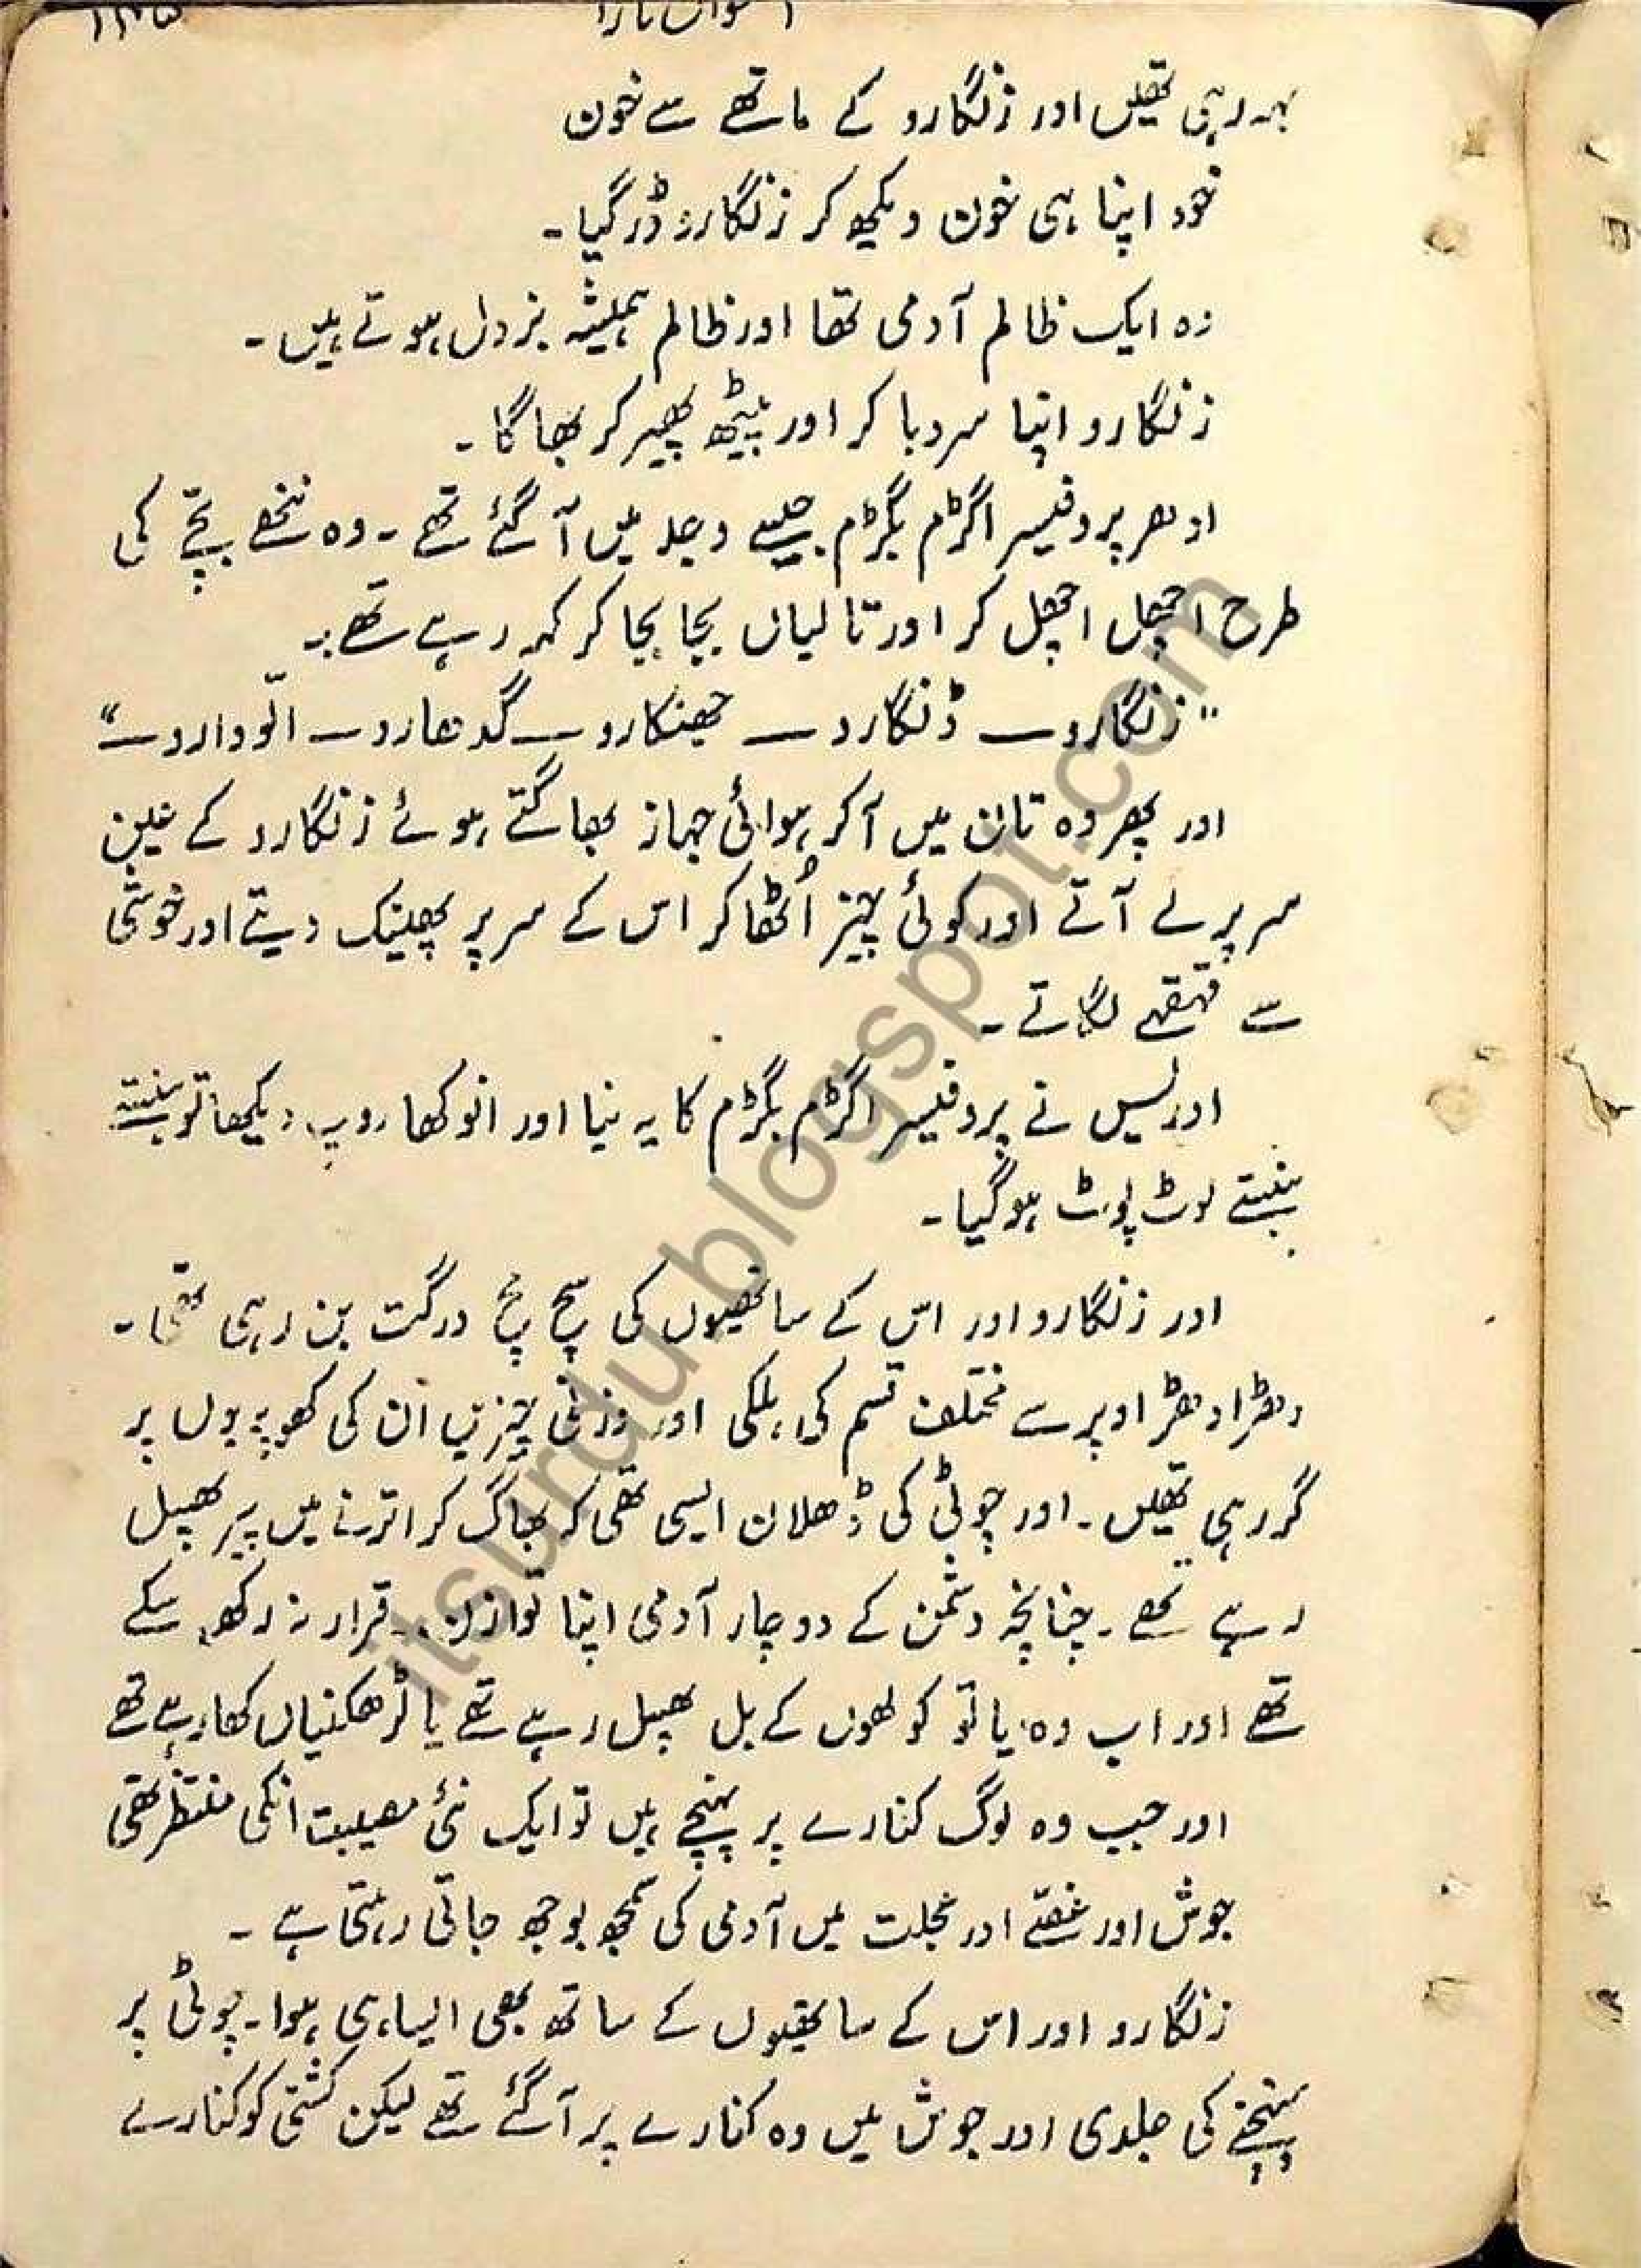 بہہ رہی تھیں اور زنگارو کے ماتھے سے خون
خود اپنا ہی خون دیکھ کر زنگارو ڈر گیا۔
وہ ایک ظالم آدمی تھا اور ظالم ہمیشہ بزدل ہوتے ہیں۔
زنگارو اپنا سر دبا کر اور پیٹھ پھیر کر بھاگا۔
ادھر پروفیسر اگڑم بگڑم جیسے وجد میں آ گئے تھے۔ وہ ننھے بچّے کی
طرح اچھل اچھل کر اور تالیاں بجا بجا کر کہہ رہے تھے:۔
"زنگارو — ڈنگارو — جھنگارو — گدھارو — الّو دارو —"
اور پھر وہ تان میں آ کر ہوائی جہاز بھاگتے ہوئے زنگارو کے عین
سر پر لے آتے اور کوئی چیز اُٹھا کر اس کے سر پر پھینک دیتے اور خوشی
سے قہقہے لگاتے۔
ادریس نے پروفیسر اگڑم بگڑم کا یہ نیا اور انوکھا روپ دیکھا تو ہنستے
ہنستے لوٹ پوٹ ہو گیا۔
اور زنگارو اور اس کے ساتھیوں کی سچ مچ درگت بن رہی تھی۔
دھڑا دھڑ اوپر سے مختلف قسم کی ہلکی اور وزنی چیزیں ان کی کھوپڑیوں پر
گر رہی تھیں۔ اور چوٹی کی ڈھلان ایسی تھی کہ بھاگ کر اترنے میں پیر پھسل
رہے تھے۔ چنانچہ دشمن کے دو چار آدمی اپنا توازن برقرار نہ رکھ سکے
تھے اور اب وہ یا تو کولھوں کے بل پھسل رہے تھے یا لڑھکنیاں کھا رہے تھے
اور جب وہ لوگ کنارے پر پہنچے ہیں تو ایک نئی مصیبت انکی منتظر تھی
جوش اور غصّے اور عجلت میں آدمی کی سمجھ بوجھ جاتی رہتی ہے۔
زنگارو اور اس کے ساتھیوں کے ساتھ بھی ایسا ہی ہوا۔ چوٹی پر
پہنچنے کی جلدی اور جوش میں وہ کنارے پر آ گئے تھے لیکن کشتی کو کنارے
itsurdu.blogspot.com